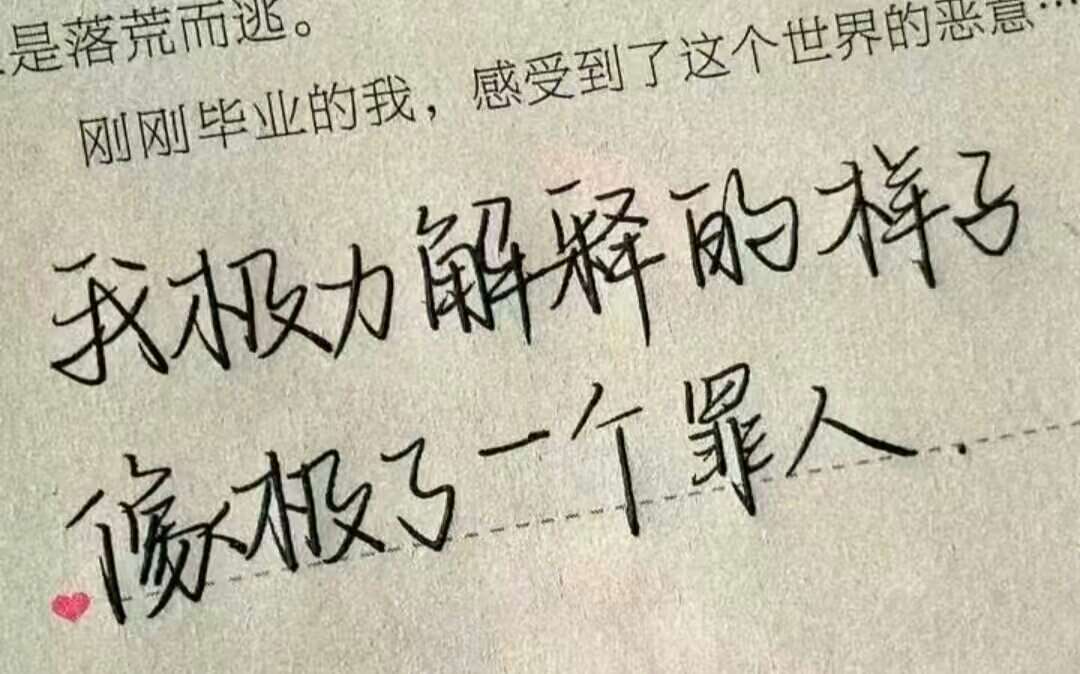 是落荒而逃。
刚刚毕业的我，感受到了这个世界的恶意…
我极力解释的样子
像极了一个罪人.